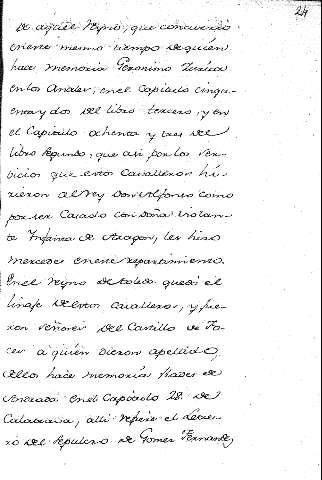 24
de aquel Reyno, que concurrio
en este mismo tiempo de quién
hace memoria Geronimo Zurita
en los Anales, en el Capitulo cinqu-
enta y dos del libro tercero, y en
el Capitulo ochenta y tres del
libro segundo, que asi por los ser-
vicios que estos Cavalleros hi-
cieron al Rey Don Alfonso como
por ser Casado con Doña Violan-
te Infanta de Aragon, les hizo
mercedes en este repartimiento.
En el Reyno de toledo quedó el
linaje de estos Cavalleros, y fue-
ron señores del Castillo de
a quién dieron apellido,
dellos hace memoria Rades de
Andrada en el Capitulo 28 de
Calatrava, alli refiere el Letre-
ro del sepulcro de Gomez Fernandez